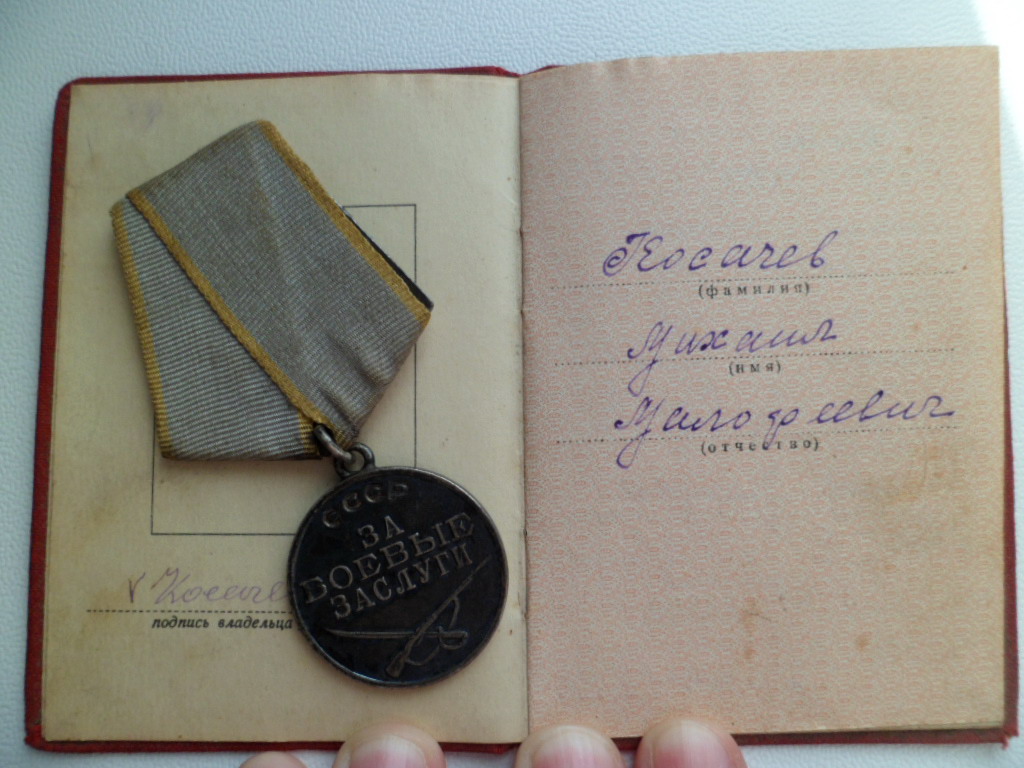 СССР
ЗА
БОЕВЫЕ
ЗАСЛУГИ
подпись владельца
Косачев
(фамилия)
Михаил
(имя)
Малофеевич
(отчество)